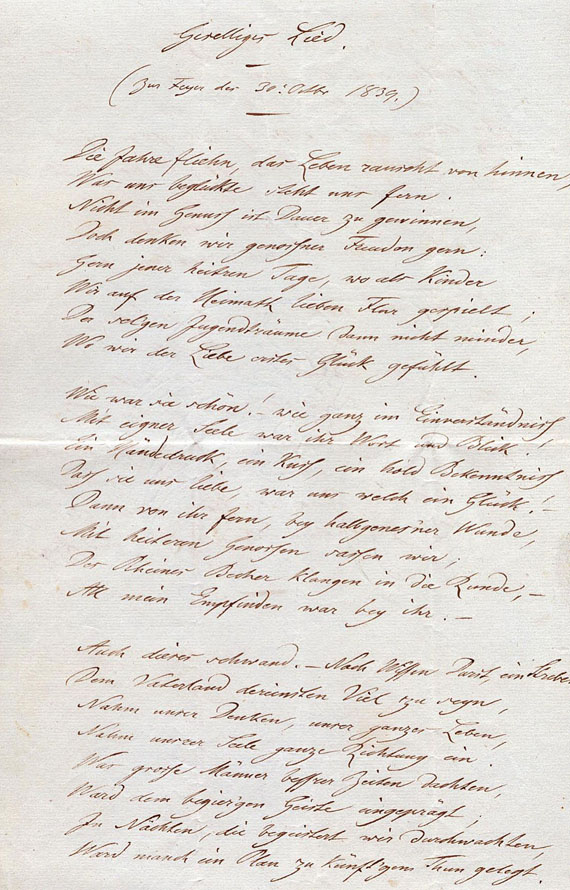 Geselliges Lied.
(Zur Feyer des 30: Octbr 1839.)
Die Jahre fliehn, das Leben rauscht von hinnen,
Was uns beglückte steht uns fern.
Nicht im Genuss ist Dauer zu gewinnen,
Doch denken wir genossner Freuden gern:
Gern jener heitren Tage, wo als Kinder
Wir auf der Heimath lieben Flur gespielt;
Der sel'gen Jugendträume dann nicht minder,
Wo wir der Liebe erstes Glück gefühlt.
Wie war sie schön! – wie ganz im Einverständniss
Mit eigner Seele war ihr Wort und Blick!
Ein Händedruck, ein Kuss, ein hold Bekenntniss
Dass sie uns liebe, war uns welch ein Glück! –
Dann von ihr fern, bey halbgenes'ner Wunde,
Mit heiteren Genossen sassen wir;
Des Rheines Becher klangen in die Runde, –
All mein Empfinden war bey ihr. –
Auch dieses schwand. – Nach Wissen Durst, ein Streben
Dem Vaterland dereinsten Viel zu seyn,
Nahm unser Denken, unser ganzes Leben,
Nahm unsrer Seele ganze Richtung ein.
Was grosse Männer bessrer Zeiten dachten,
Ward dem begier'gen Geiste eingeprägt;
In Nächten, die begeistert wir durchwachten,
Ward manch ein Plan zu künft'gem Thun gelegt.